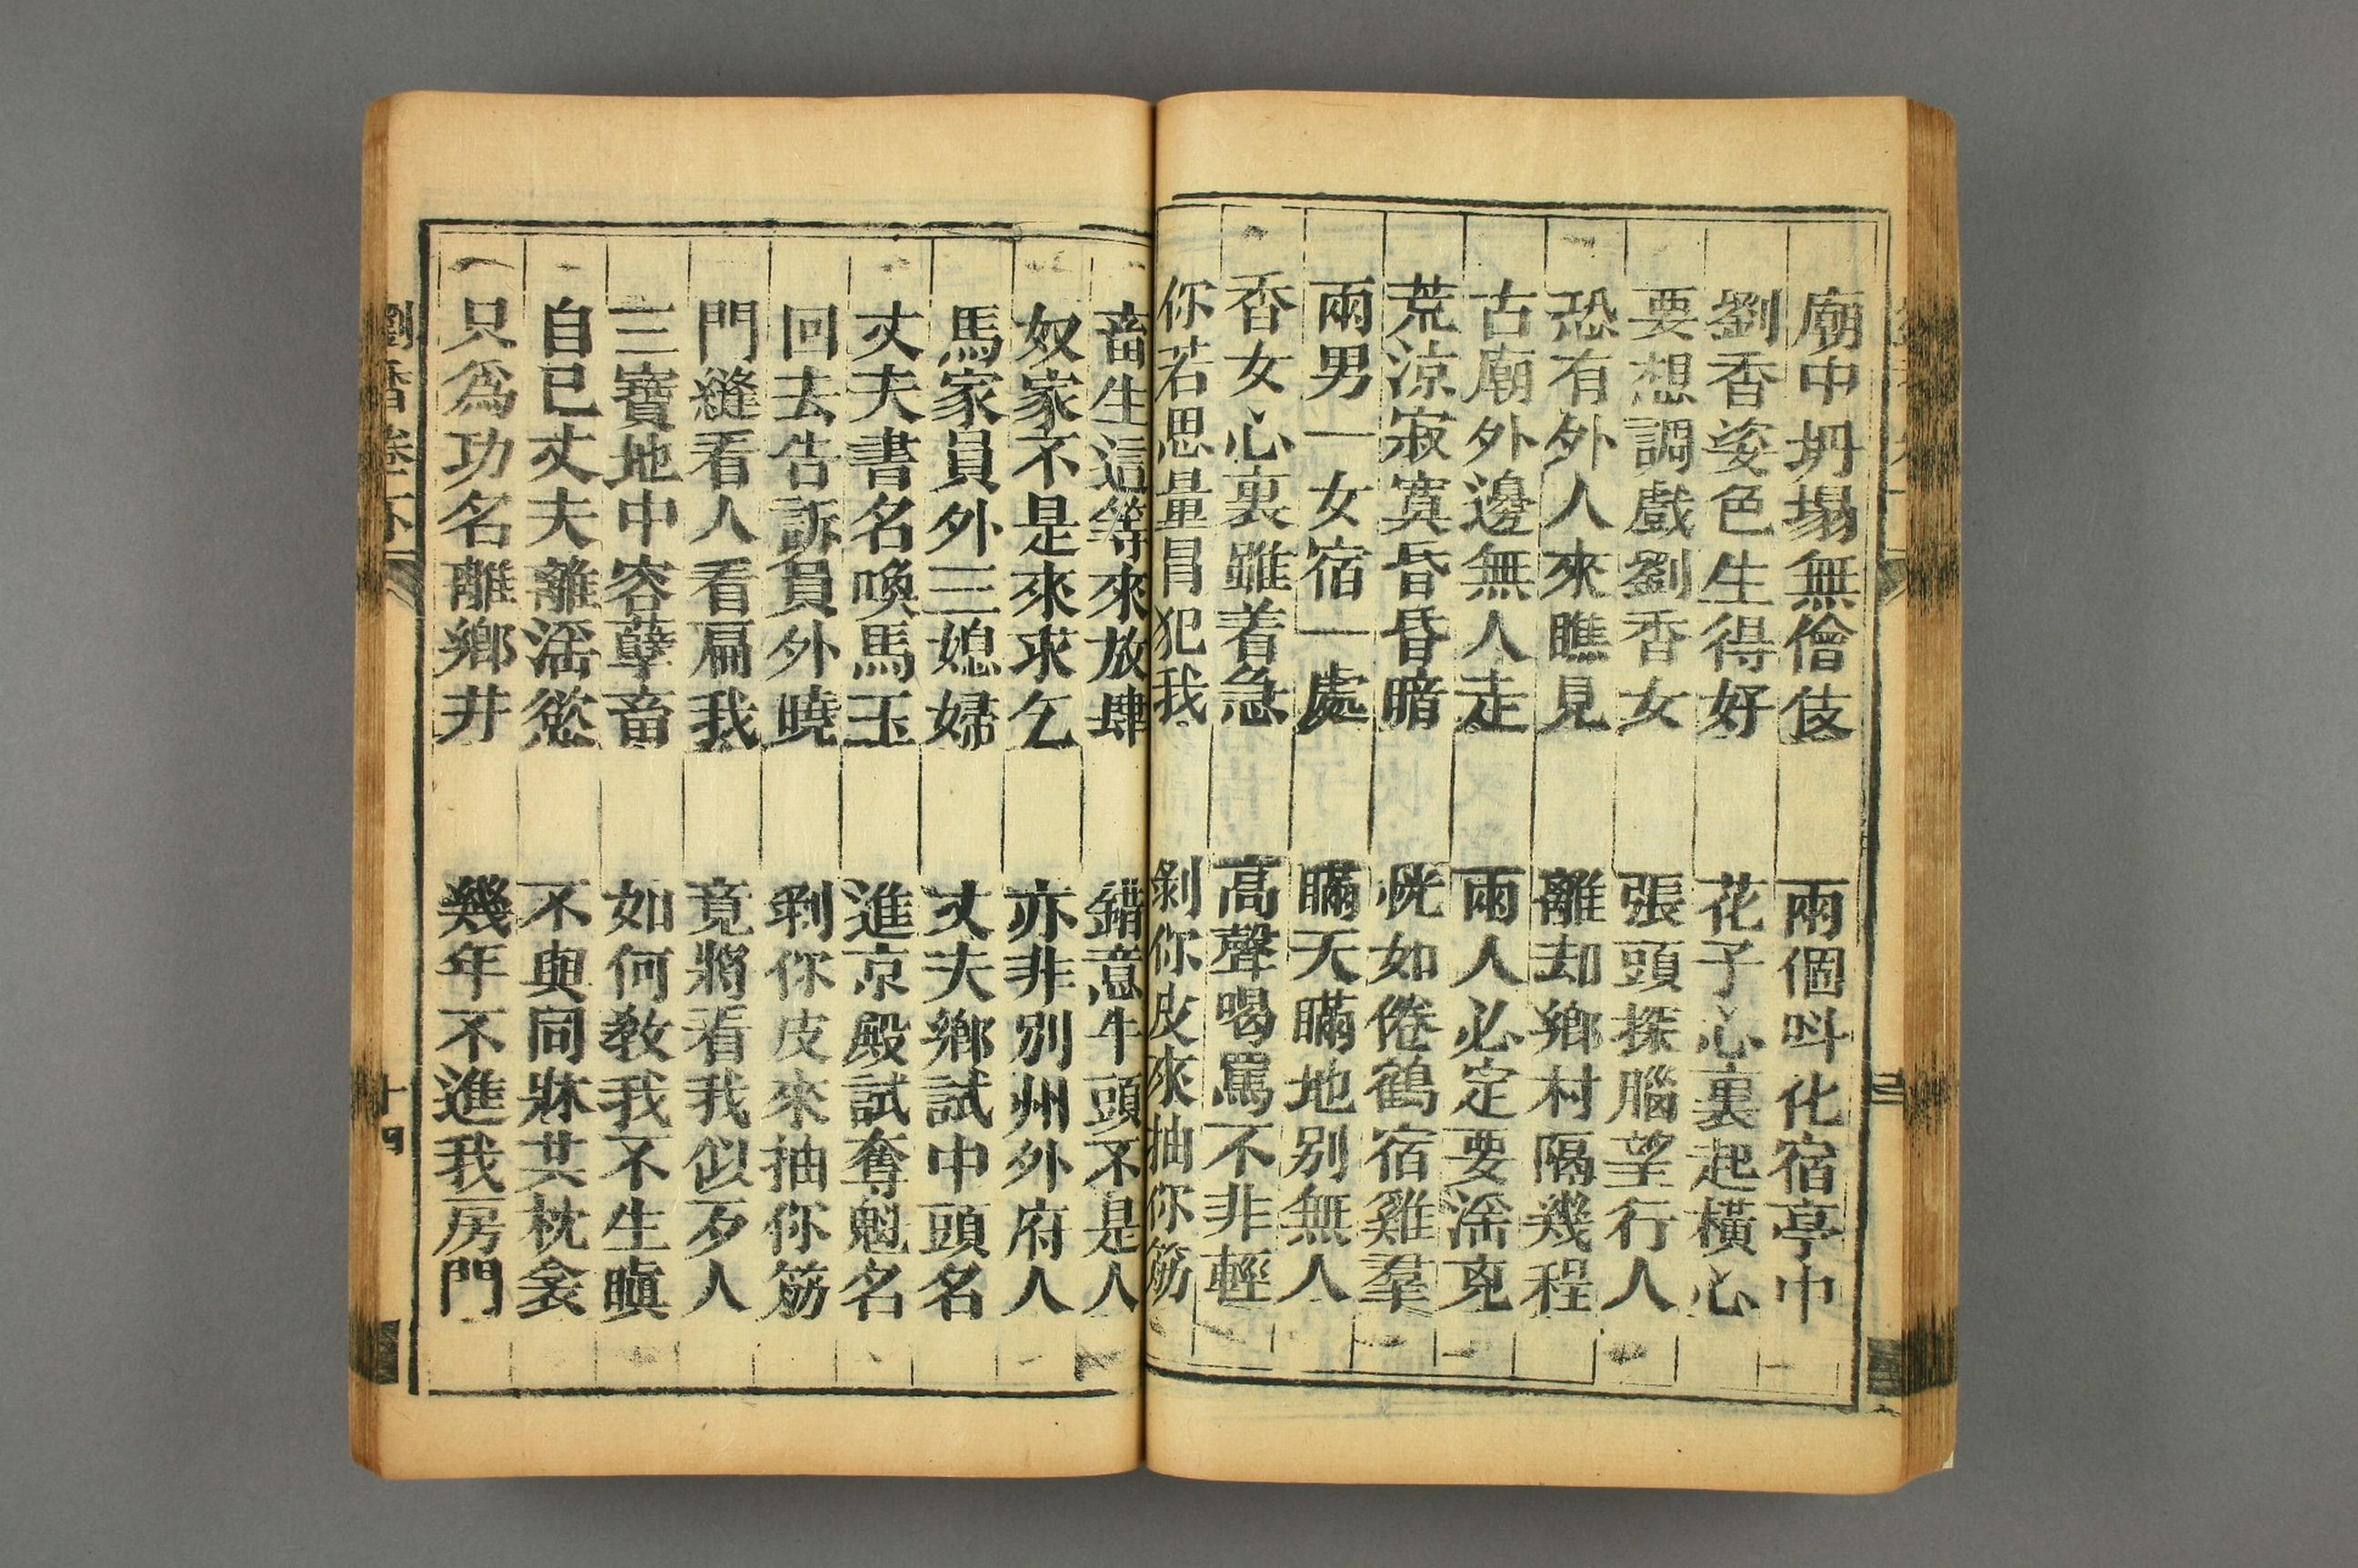 廟中坍塌無僧伎　兩個呌化宿亭中
劉香姿色生得好　花子心裏起橫心
要想調戲劉香女　張頭探腦望行人
恐有外人來瞧見　離却鄉村隔幾程
古廟外邊無人走　兩人必定要滛兇
荒涼寂寞昏昏暗　恍如倦鶴宿雞羣
兩男一女宿一處　瞞天瞞地別無人
香女心裏雖着急　高聲喝罵不非輕
你若思量冐犯我　剝你皮來抽你筋
畜生這等來放肆　錯意牛頭不是人
奴家不是來求乞　亦非別州外府人
馬家員外三媳婦　丈夫鄉試中頭名
丈夫書名喚馬玉　進京殿試奪魁名
回去告訴員外曉　剥你皮來抽你筋
門縫看人看扁我　竟將看我似歹人
三寶地中容孽畜　如何教我不生瞋
自已丈夫離滛慾　不與同牀共枕衾
只為功名離鄉井　幾年不進我房門
劉香卷下
十四